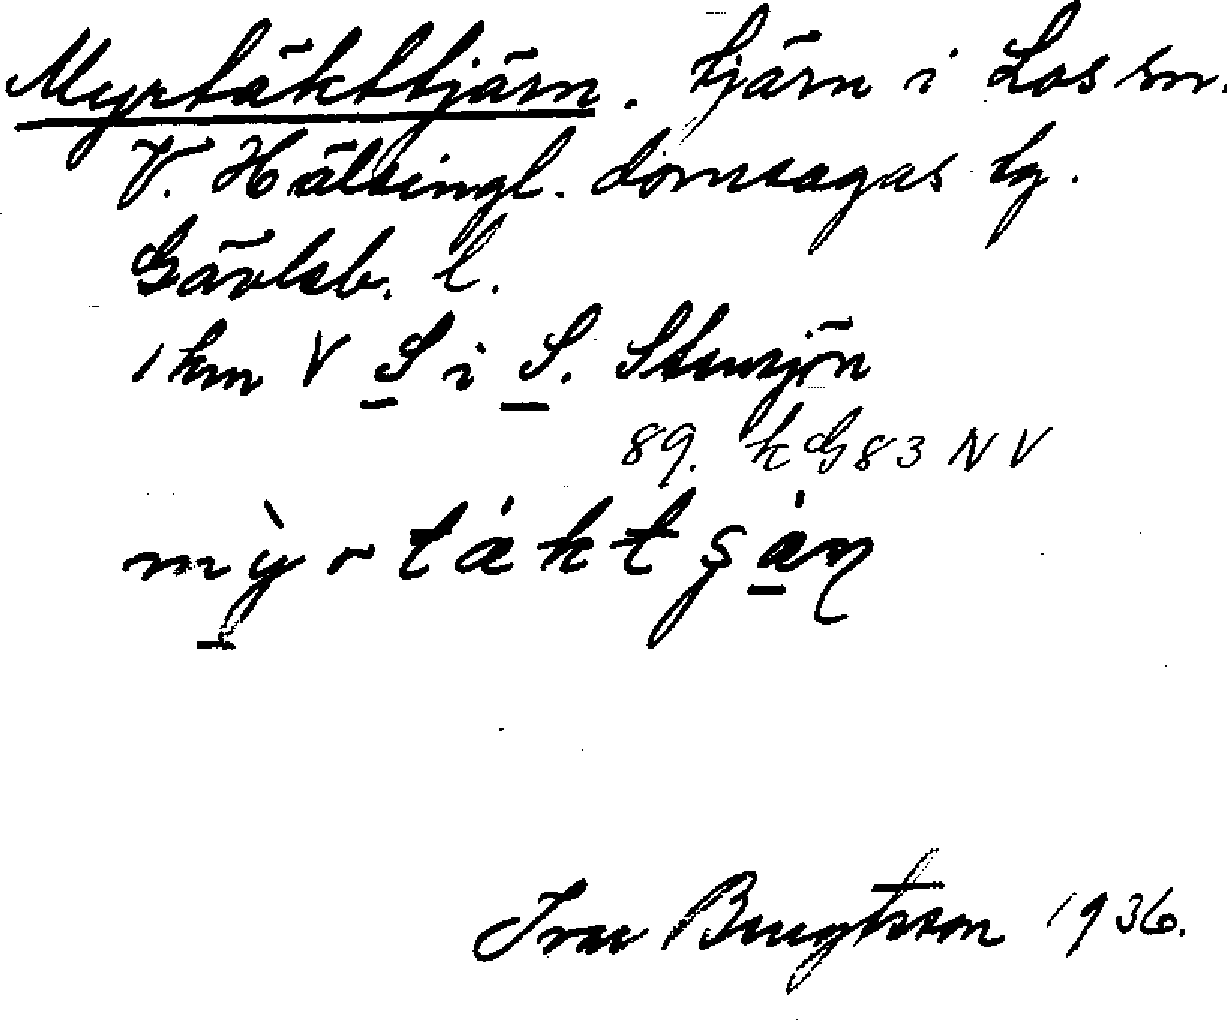 Myrtäkttjärn. tjärn i Los sn.
V. Hälsingl. domsagas tg.
Gävleb. l.
1 km V S i S. Stensjön
89. kG83 NV
mỳrtäktșäṇ
Ivar Bengtsson 1936.